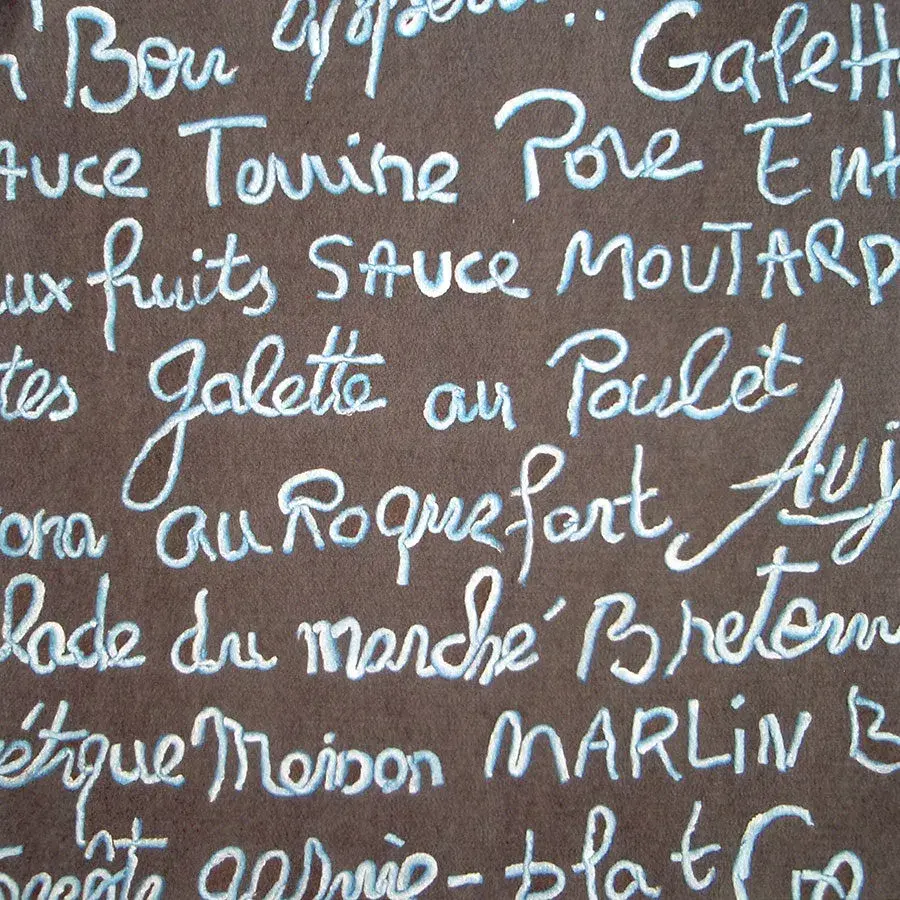 Bon appétit.. Galett
auce Terrine Porc Ent
aux fruits SAUCE MOUTARD
tes galette au Poulet
ona au Roquefort Auj
lade du marché Bretonn
étique Maison MARLIN B
garnie-plat